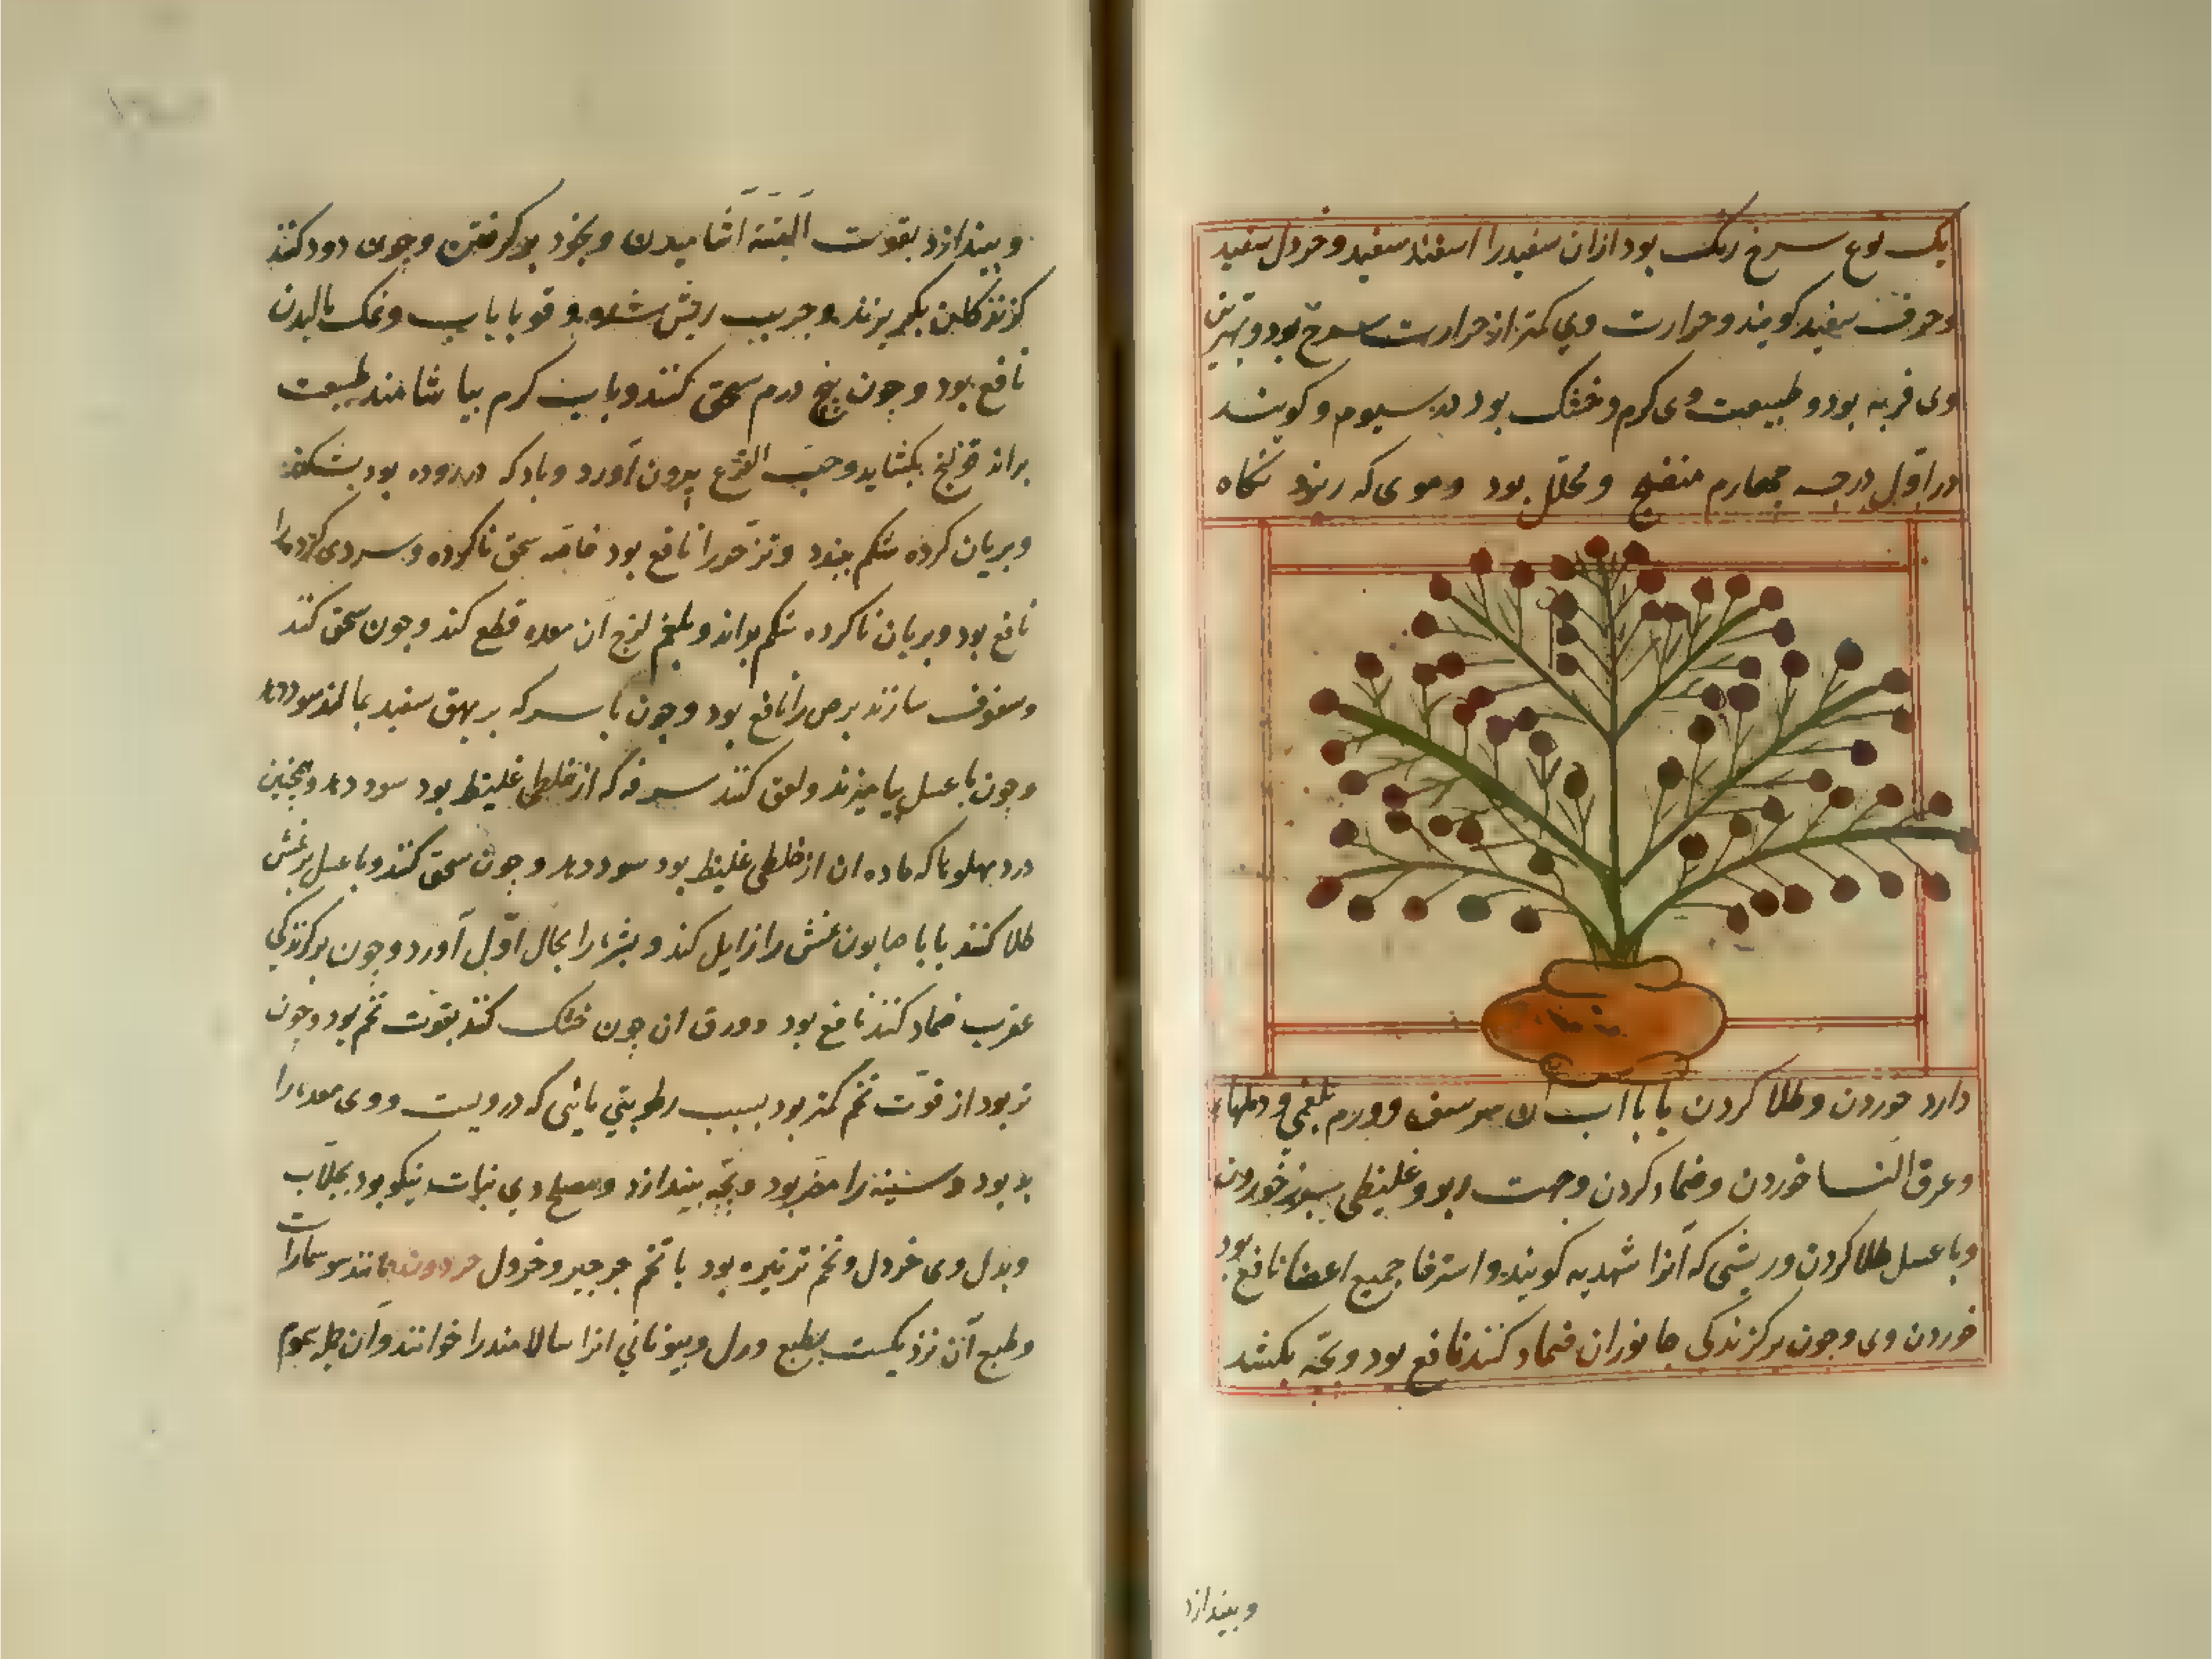 یک نوع سرخ رنک بود ازان سفید را اسفند سفید و خردل سفید
و حرف سفید کویند و حرارت وی کمتر از حرارت سرخ بود و بهترین
وی فربه بود و طبیعت وی کرم و خشک بود در سیوم و کویند
در اول درجه چهارم منضج و محلل بود و موی که ریزد نکاه
دارد خوردن و طلا کردن یا با اب ان و ورم بلغمی و دملها
و عرق النسا خوردن و ضماد کردن و جهت ربو و غلیظی سپرز خوردن
و با عسل طلا کردن و ریشی که آنرا شهدیه کویند و استرخا جمیع اعضا نافع بود
خوردن وی و چون بر کزندکی جانوران ضماد کنند نافع بود و بچه بکشد
و بیندازد
و بیندازد بقوت البته آشامیدن و بخود بر کرفتن و چون دود کنند
کزندکان بکریزند و جرب ریش شده و قوبا با اب و نمک مالیدن
نافع بود و چون پنج درم سحق کنند و با اب کرم بیاشامند طبیعت
براند قولنج بکشاید و حب القرع بیرون آورد و باد که در روده بود بشکند
و بریان کرده شکم ببندد و تزحیر را نافع بود خاصه سحق ناکرده و سردی کرده را
نافع بود و بریان ناکرده شکم براند و بلغم لزج از معده قطع کند و چون سحق کنند
و سفوف سازند برص را نافع بود و چون با سرکه بر بهق سفید بمالند سود دهد
و چون با عسل بیامیزند و لعق کنند سرفه که از خلطی غلیظ بود سود دهد و همچنین
درد پهلوها که ماده ان از خلطی غلیظ بود سود دهد و چون سحق کنند و با عسل بر نمش
طلا کنند یا با صابون نمش را زایل کند و بشره را بحال اول آورد و چون بر کزندکی
عقرب ضماد کنند نافع بود و ورق ان چون خشک کنند بقوت تخم بود و چون
تر بود از قوت تخم کمتر بود بسبب رطوبتی مائی که درویست و وی معده را
بد بود و سینه را مضر بود و بچه بیندازد و مصلح وی نبات نیکو بود بجلاب
و بدل وی خردل و تخم ترتیزه بود یا تخم جرجیر و خردل حردون مانند سوسمارات
و طبع آن نزدیکست بطبع ورل و بیونانی انرا سالامندرا خوانند و ان